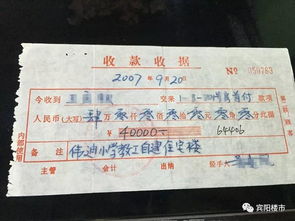 收款收据
2007年9月20日
№ 050763
今收到 交来 首付 款项
人民币(大写) 肆万零仟零佰零拾零元 角 分 此据
¥ 40000—
64406
备注 伟迪小学教工自建住宅楼
主管 会计 出纳 经手人
内部使用
宾阳楼市